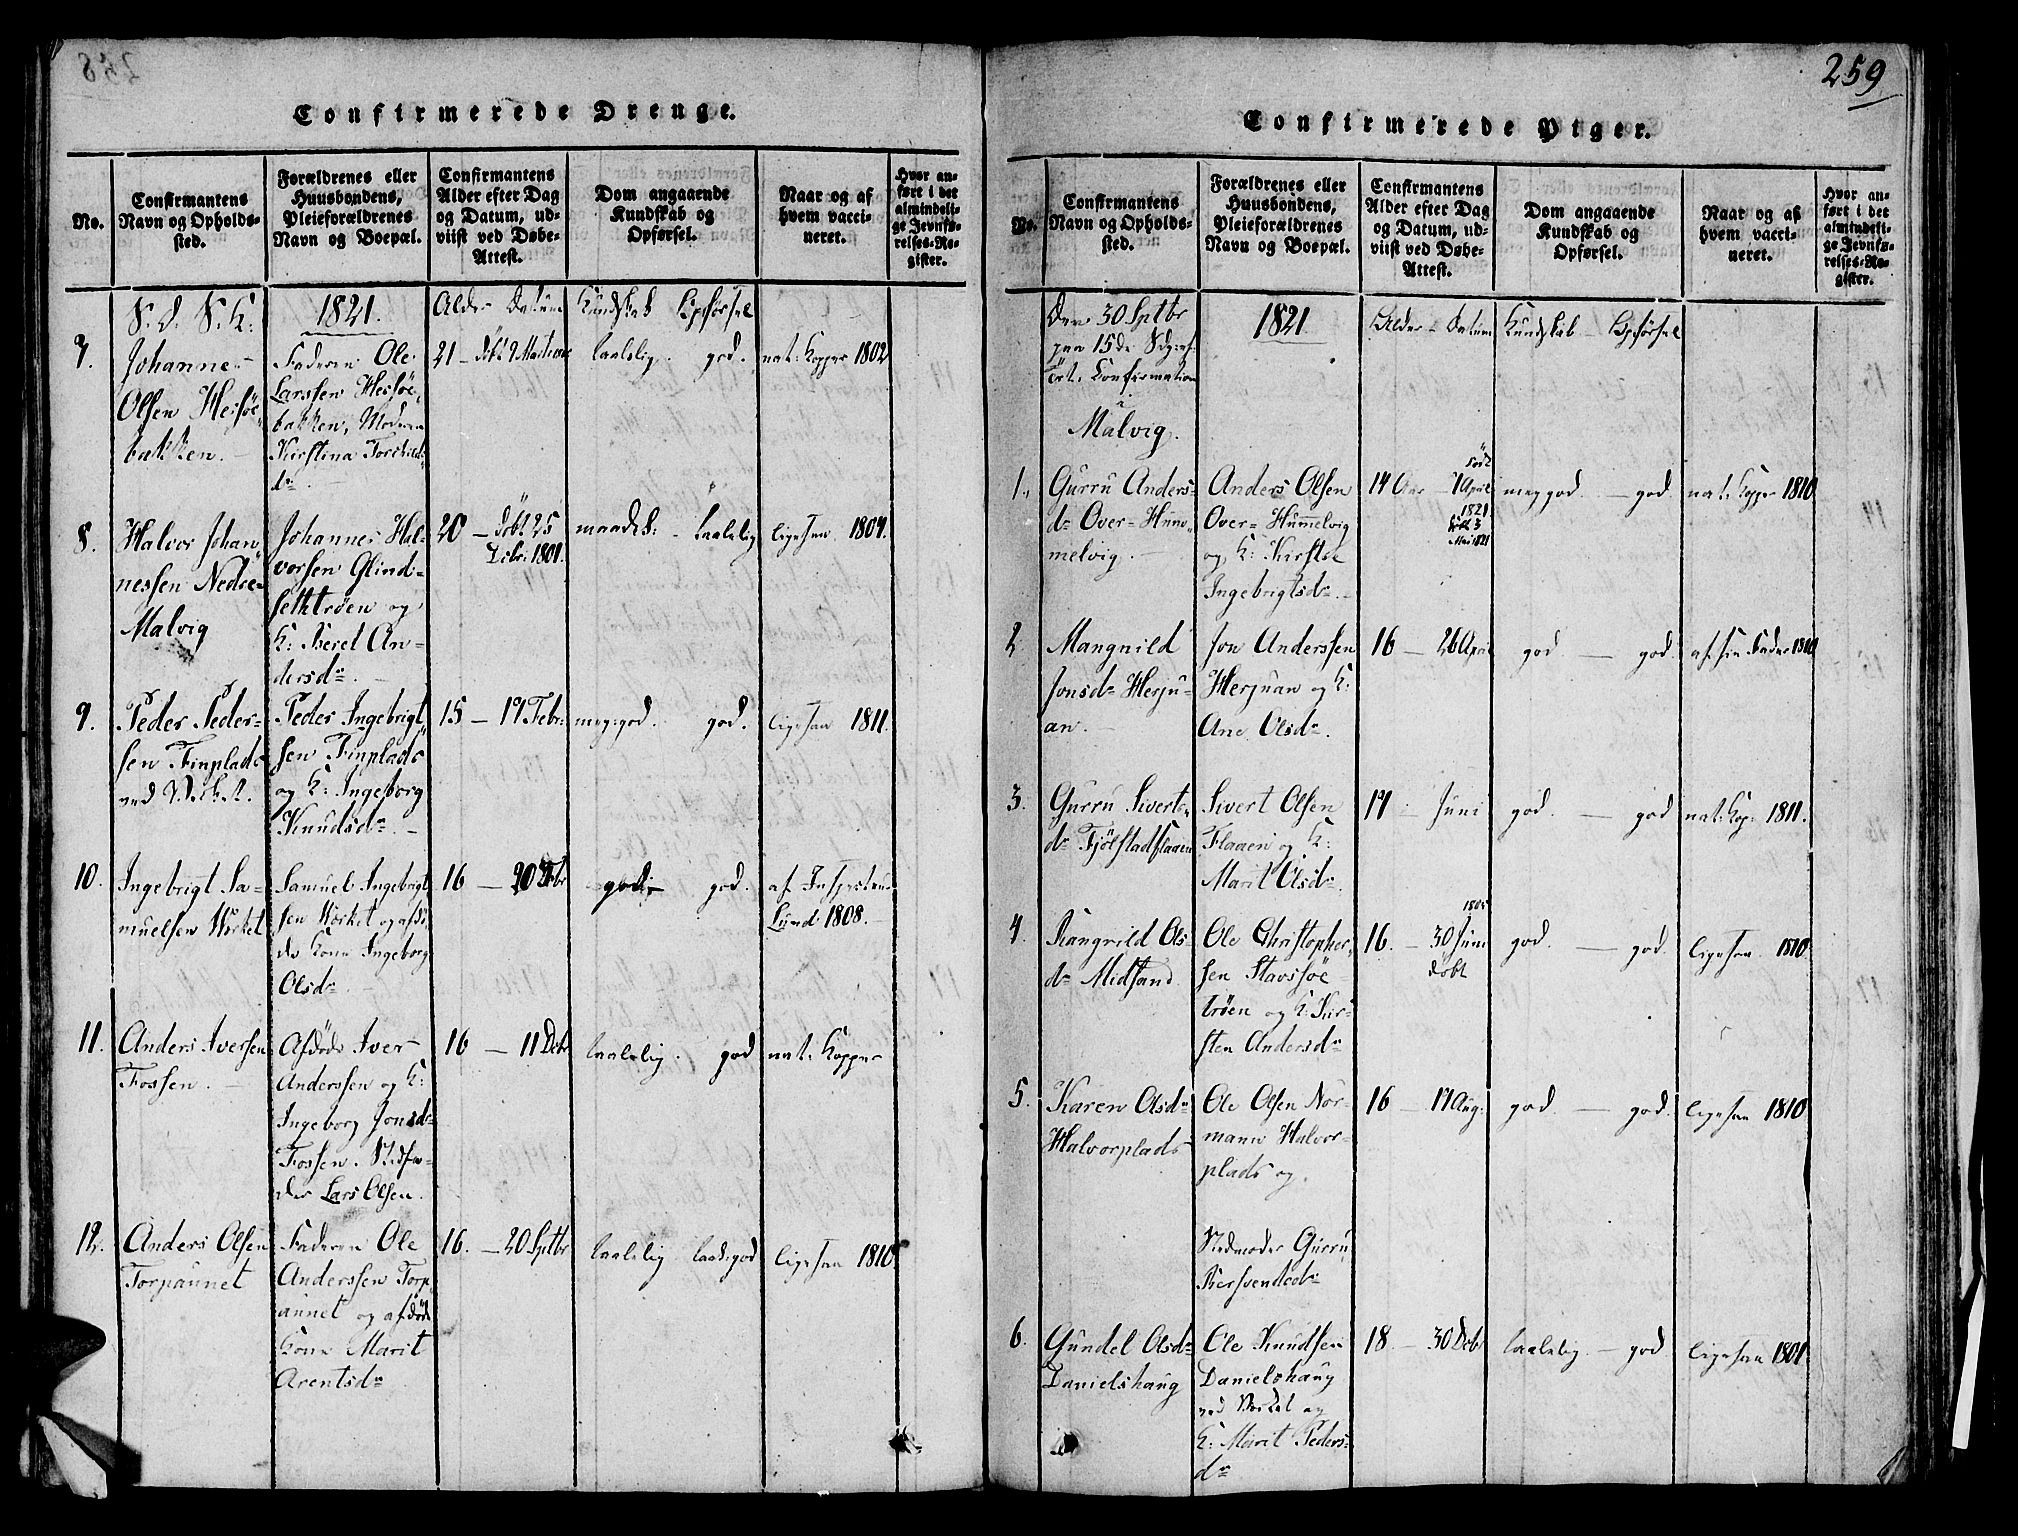 Confirmerede Drenge.
No.
Confirmantens
Navn og Opholds-
sted.
Forældrenes eller
Huusbondens,
Pleieforældrenes
Navn og Boepæl.
Confirmantens
Alder efter Dag
og Datum, ud-
viist ved Døbe-
Attest.
Dom angaaende
Kundskab og
Opførsel.
Naar og af
hvem vacci-
neret.
Hvor an-
ført i det
almindeli-
ge Jevnfø-
relses-Re-
gister.
S. D. S. K:
1821.
Alder Datum
Kundskab Opførsel
7.
Johannes
Olsen Hesjöe
bakken.
Faderen Ole
Larssen Hesjöe
bakken, Moderen
Kirstina Torkilds
dr.
21
taalelig. god.
nat: Kopper 1802
8.
Halvor Johan
nessen Nedre
Malvig
Johannes Hal-
vorsen Glind-
sethtröen og
K: Beret An-
dersdr.
20 – Döbt 25
Debr: 1801.
maadel: taalelig
ligesaa 1804.
9.
Peder Peder-
sen Finplads
ved
Peder Ingebrigt
sen Finplads
og K: Ingeborg
Knudsdr.
15 – 19 Febr:
meg: god. god.
ligesaa 1811.
10.
Ingebrigt Sa-
muelsen Værket
Samuel Ingebrigt
sen Værket og afdö
de Kone Ingeborg
Olsdr.
16 – 20
god god.
af Inspecteur
Lund 1808.
11.
Anders Iversen
Fossen.
Afdöde Iver
Anderssen og K:
Ingeborg Jonsdr
Fossen. Stedfa-
der Lars Olsen.
16 – 11 Debr
taalelig. god
nat: Kopper
12.
Anders Olsen
Torpaunet
Faderen Ole
Anderssen Torp
aunet og afdöde
Kone Marit
Arentsdr
16. – 20 Septbr
taalelig god
ligesaa 1810
259
Confirmerede Piger.
No.
Confirmantens
Navn og Opholds-
sted.
Forældrenes eller
Huusbondens,
Pleieforældrenes
Navn og Boepæl.
Confirmantens
Alder efter Dag
og Datum, ud-
viist ved Døbe-
Attest.
Dom angaaende
Kundskab og
Opførsel.
Naar og af
hvem vacci-
neret.
Hvor an-
ført i det
almindeli-
ge Jevnfø-
relses-Re-
gister.
Den 30 Septbr
paa 15de
Confirmation
i
Malvig.
1821
Alder – Datum
Kundskab – Opförsel
1.
Gurru Anders-
dr Over-Hum-
melvig.
Anders Olsen
Over-Hummelvig
og K: Kirsten
Ingebrigtsdr.
14 Aar 7 April
meg god. – god.
nat: Kopper 1810
2.
Mangnild
Jonsdr Herju-
an.
Jon Anderssen
Herjuan og K:
Ane Olsdr.
16 – 26 April
god. – god.
af sin Fader 1810
3.
Gurru Siverts-
dr Fjölstadflaaen
Sivert Olsen
Flaaen og K:
Marit Olsdr.
17 Juni
god. – god
nat: Kop: 1811.
4.
Rangnild Ols
dr Midsand
Ole Christopher
sen Stavsjöe
tröen og K: Kir-
sten Andersdr
16. – 30 Juni
döbt
god. – god.
ligesaa 1810.
5.
Karen Olsdr
Halvorplads
Ole Olsen Nor-
mann Halvor-
plads og
Stedmoder Gurru
Bersvendsdr
16 – 17 Aug:
god. – god.
ligesaa 1810
6.
Gundel Olsdr
Danielshaug
Ole Knudsen
Danielshaug
ved Værket og
K: Marit Peders-
dr
18 – 30 Debr
taalelig – god
ligesaa 1801.